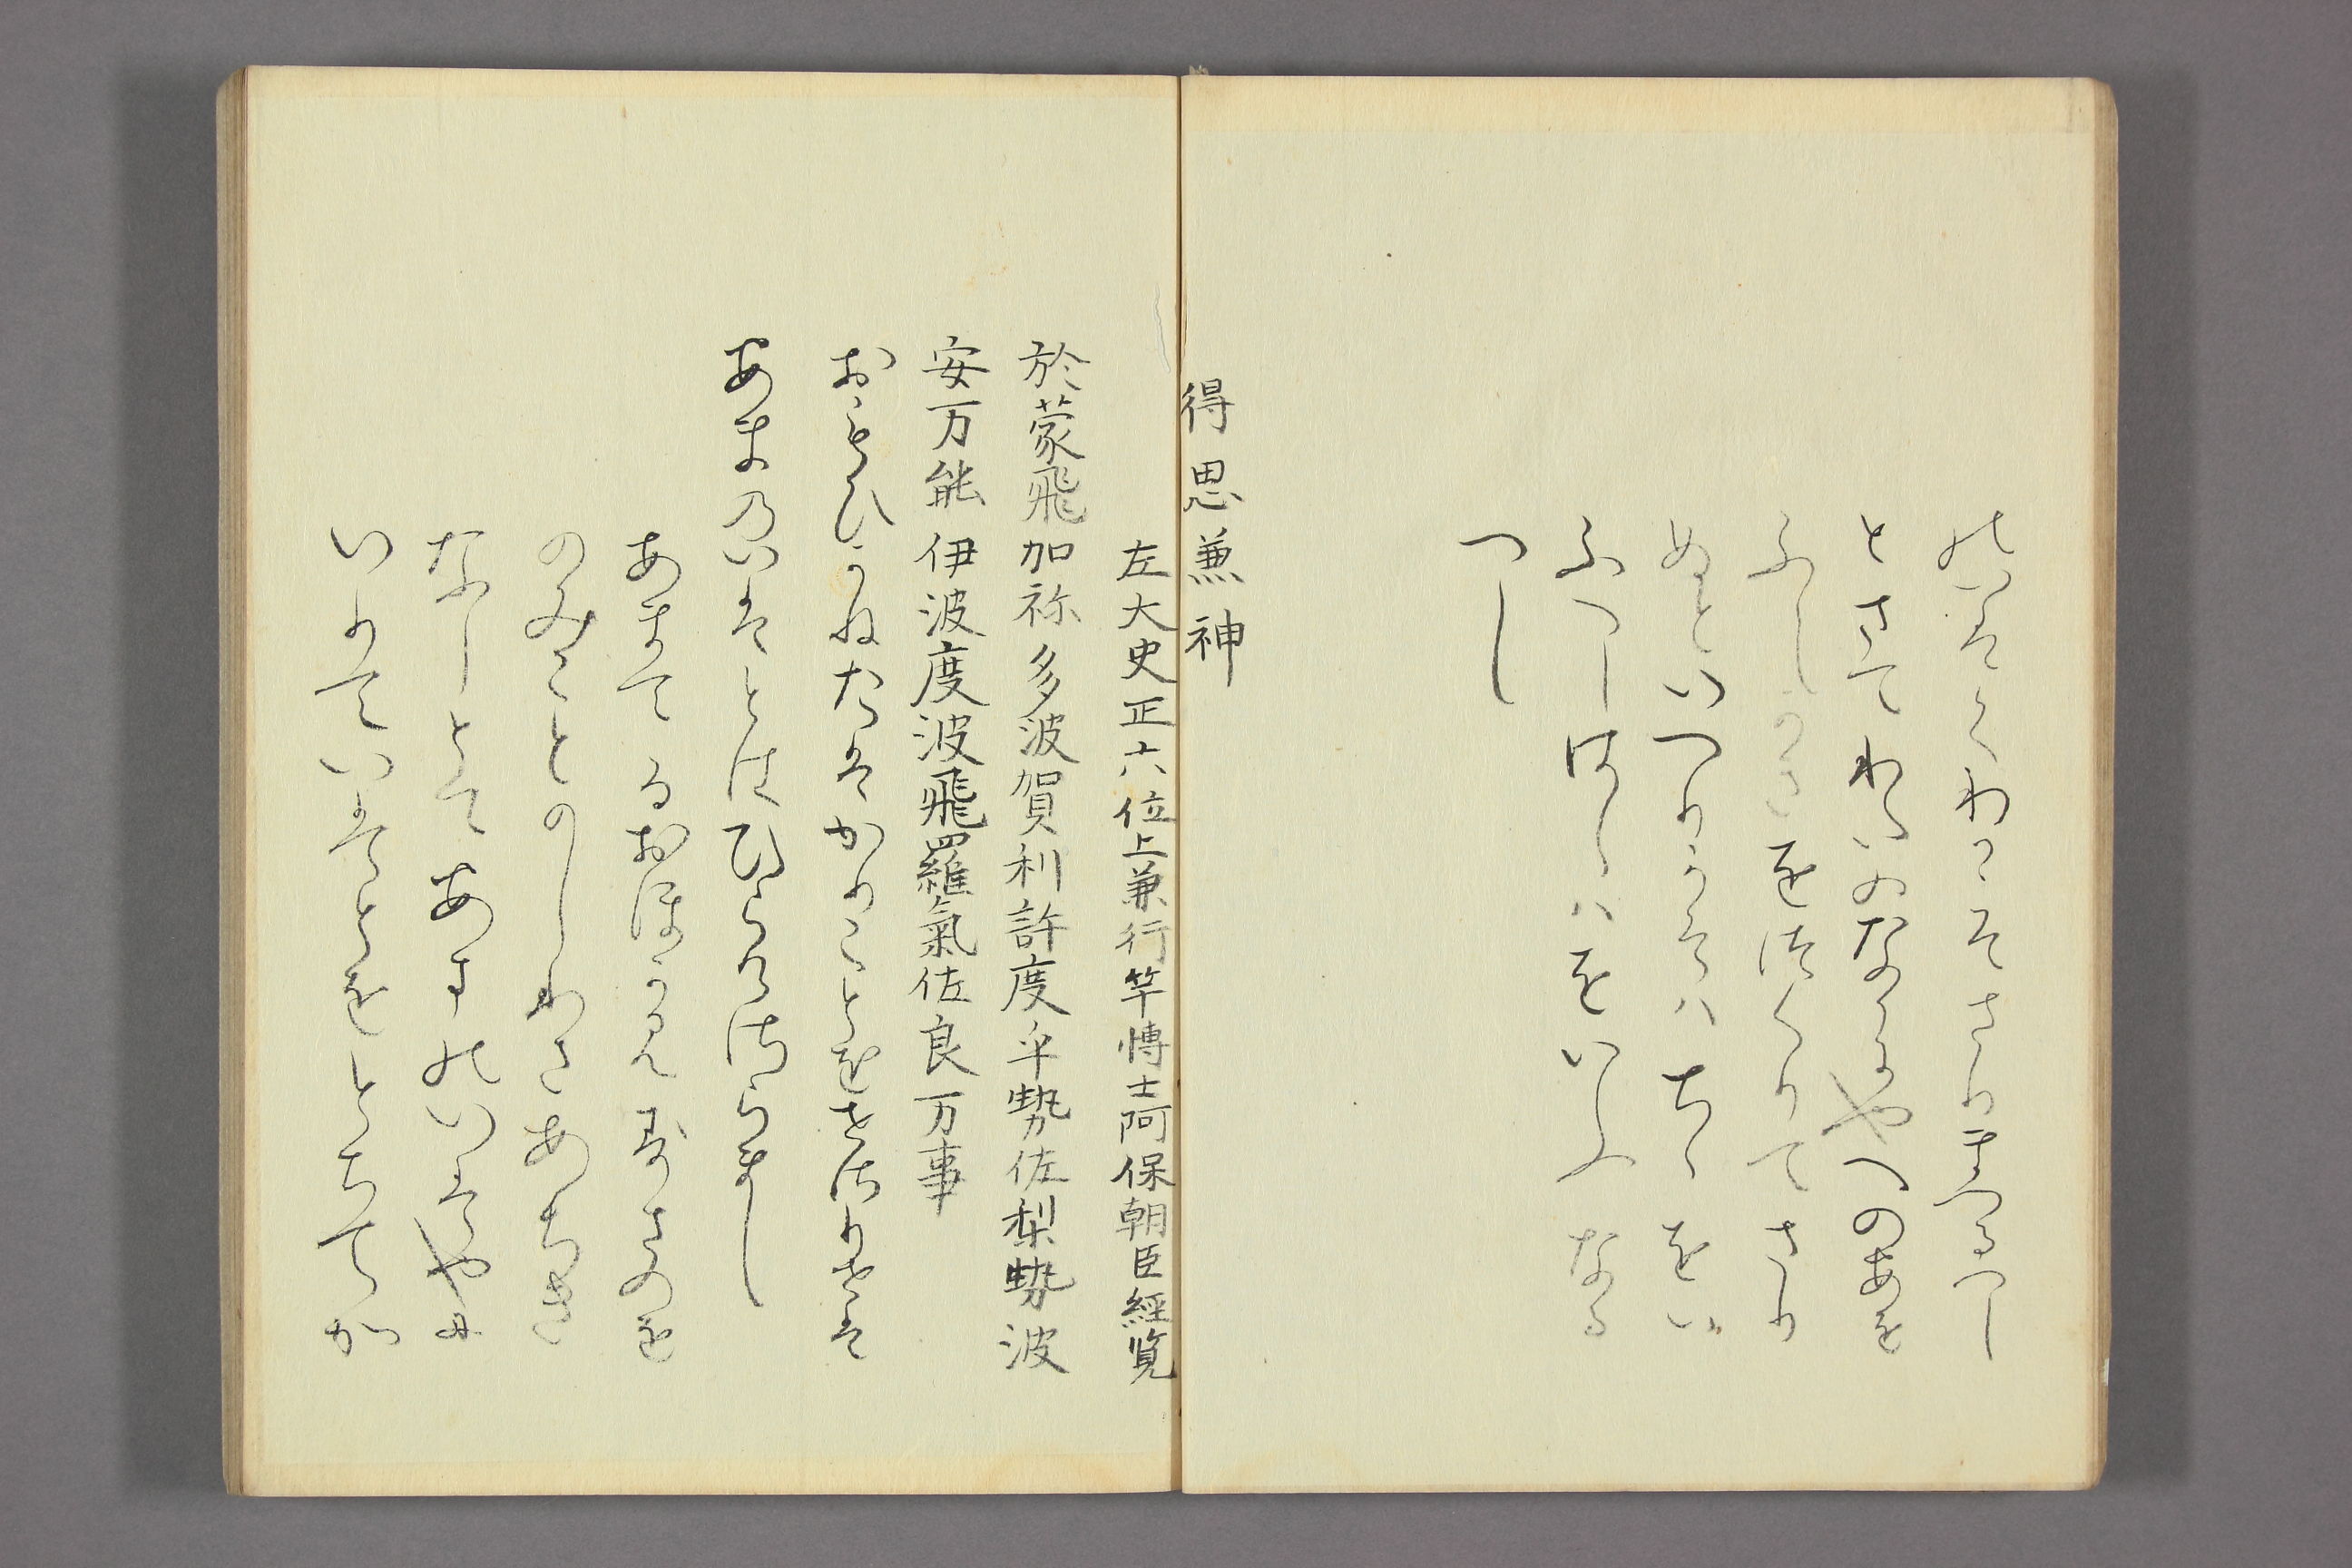 とさてわれいのなかにや人のあを
ふしかさを江くりてさり
めといつりうそハちゝをい
ふつしはしハをいふなる
つし
得思兼神
左大史正六位上兼行竿博士阿保朝臣經覧
於蒙飛加祢多波賀利許度乎勢佐梨勢波
安万能伊波度波飛羅氣佐良万事
おもひかねたはかりことをせさりせは
あまのいはとはひらけさらまし
あまてるおほかみすさのを
のみことのしわさあちき
なしとてあまのいはやに
いりていはとをとちてか